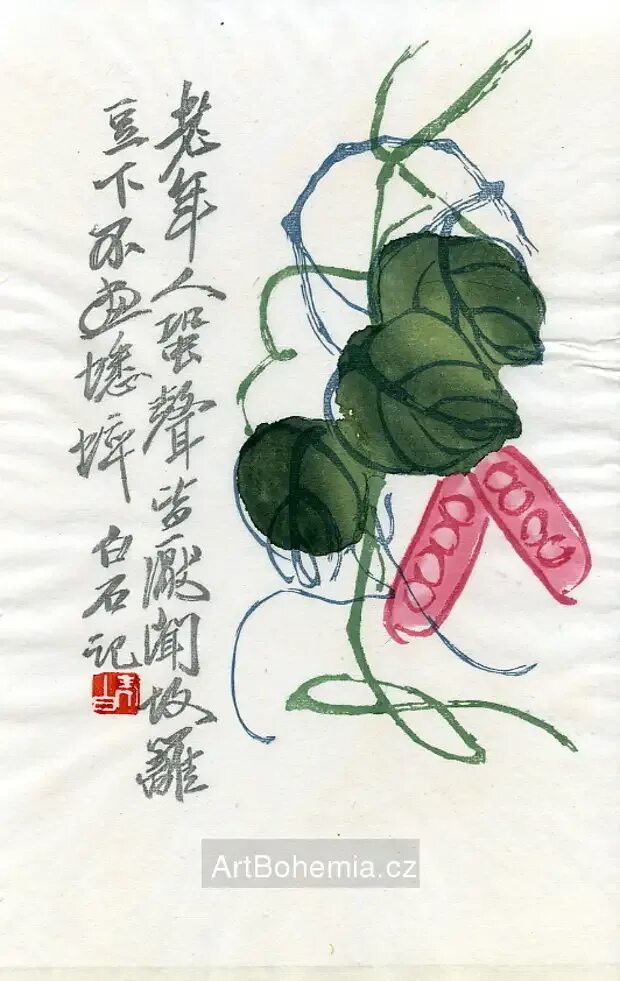 老年人蛩聲皆厭聞故籬
豆下不畫蟋蟀 白石記
ArtBohemia.cz